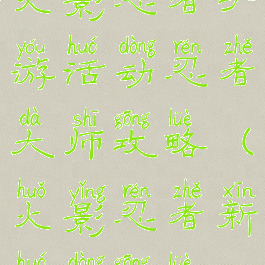 火影忍者手
yóu huó dòng rěn zhě
游活动忍者
dà shī gōng lüè
大师攻略（
huǒ yǐng rěn zhě xīn
火影忍者新
huó dòng gōng lüè